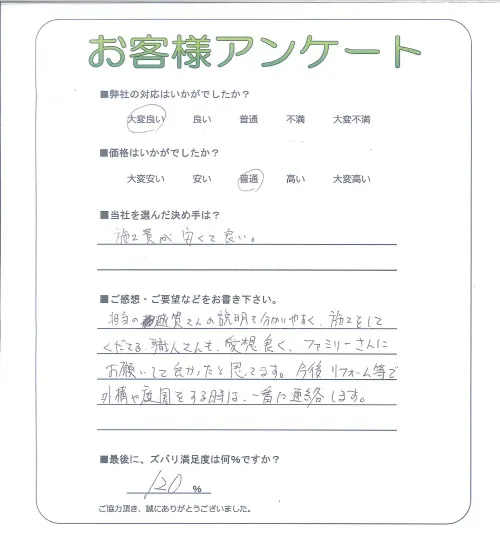 お客様アンケート
■弊社の対応はいかがでしたか？
大変良い 良い 普通 不満 大変不満
■価格はいかがでしたか？
大変安い 安い 普通 高い 大変高い
■当社を選んだ決め手は？
施工費が安くて良い。
■ご感想・ご要望などをお書き下さい。
担当の さんの説明も分かりやすく、施工をして
くださる職人さんも、愛想良く、ファミリーさんに
お願いして良かったと思てます。今後リフォーム等で
外構や庭園をする時は、一番に連絡します。
■最後に、ズバリ満足度は何%ですか？
120 %
ご協力頂き、誠にありがとうございました。